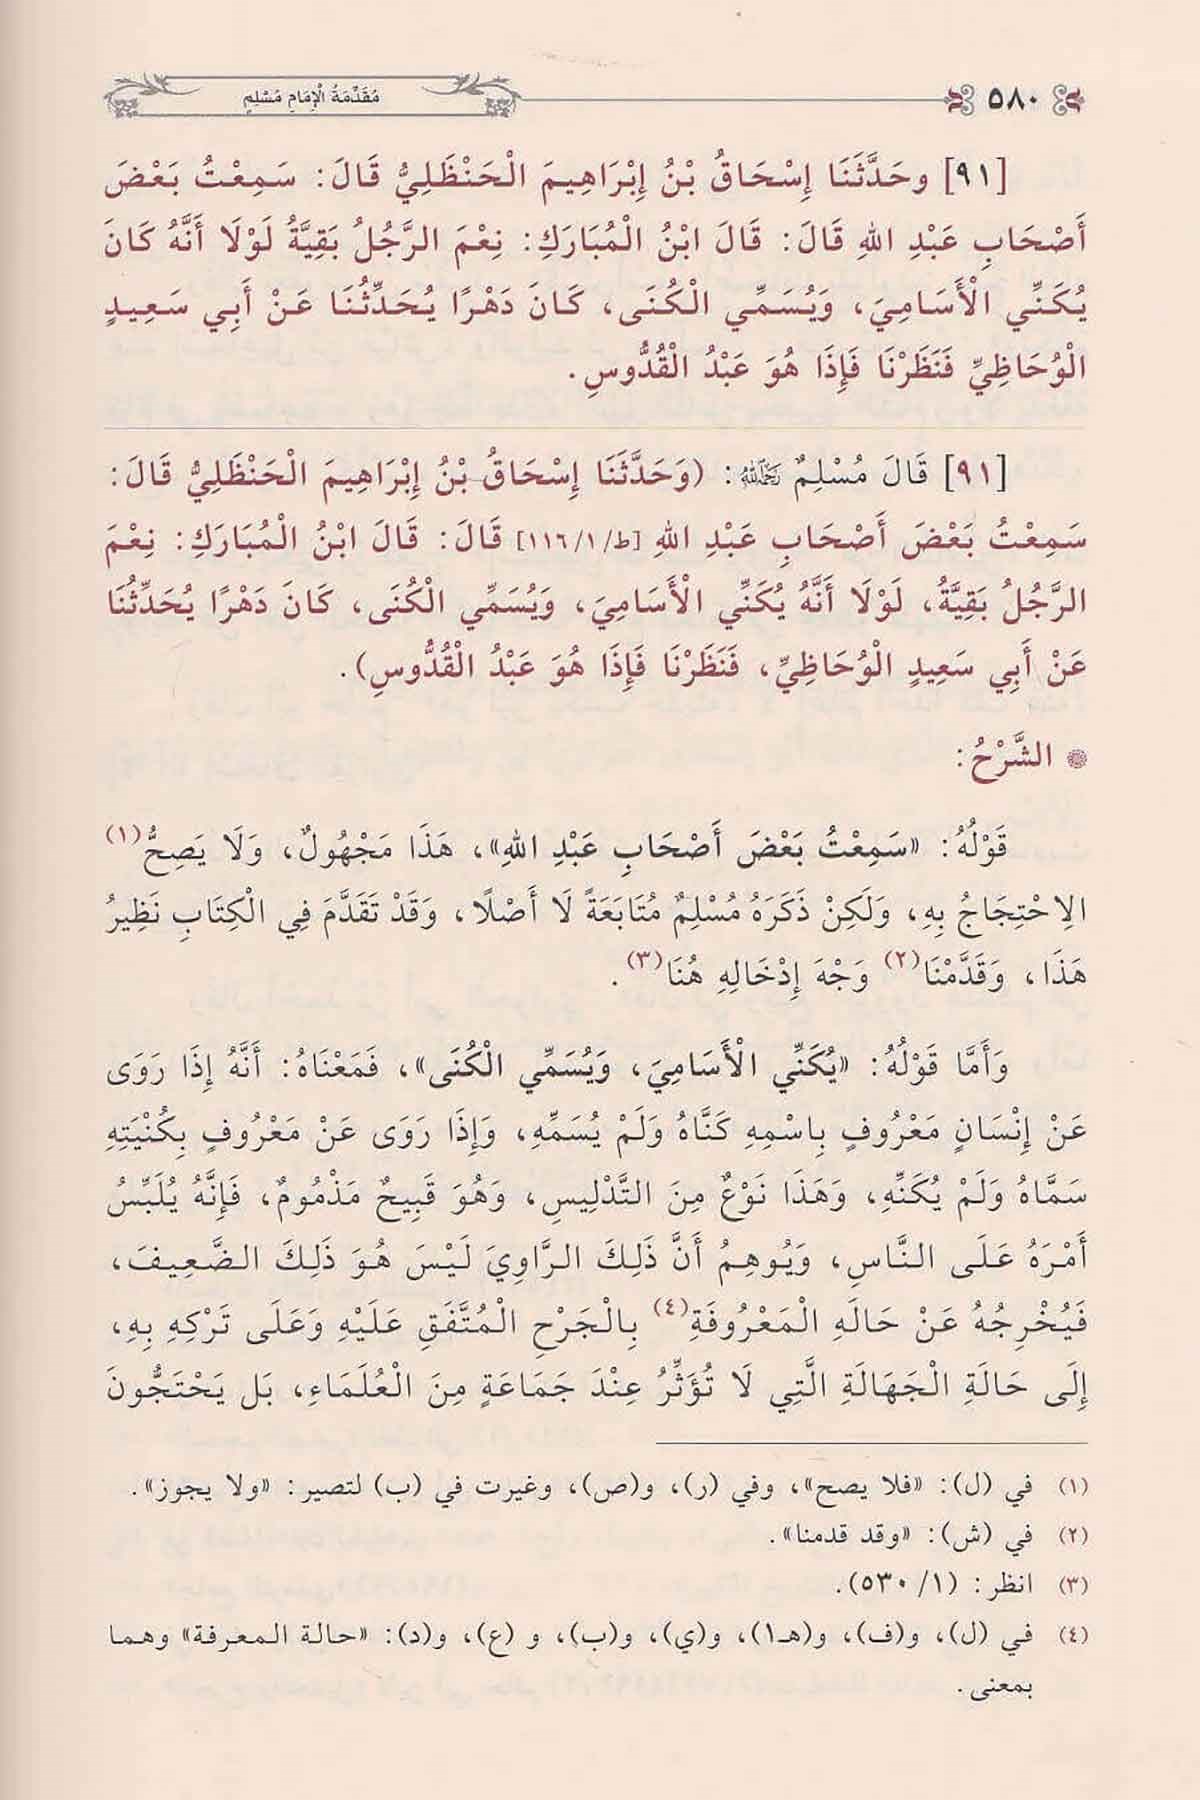 ٥٨٠
مُقَدِّمَةُ الْإِمَامِ مُسْلِمٍ
[٩١] وحَدَّثَنَا إِسْحَاقُ بْنُ إِبْرَاهِيمَ الْحَنْظَلِيُّ قَالَ: سَمِعْتُ بَعْضَ
أَصْحَابِ عَبْدِ اللهِ قَالَ: قَالَ ابْنُ الْمُبَارَكِ: نِعْمَ الرَّجُلُ بَقِيَّةُ لَوْلَا أَنَّهُ كَانَ
يُكَنِّي الْأَسَامِيَ، وَيُسَمِّي الْكُنَى، كَانَ دَهْرًا يُحَدِّثُنَا عَنْ أَبِي سَعِيدٍ
الْوُحَاظِيِّ فَنَظَرْنَا فَإِذَا هُوَ عَبْدُ الْقُدُّوسِ.
[٩١] قَالَ مُسْلِمٌ رَحِمَهُ اللهُ: (وَحَدَّثَنَا إِسْحَاقُ بْنُ إِبْرَاهِيمَ الْحَنْظَلِيُّ قَالَ:
سَمِعْتُ بَعْضَ أَصْحَابِ عَبْدِ اللهِ [ط/١/١١٦] قَالَ: قَالَ ابْنُ الْمُبَارَكِ: نِعْمَ
الرَّجُلُ بَقِيَّةُ، لَوْلَا أَنَّهُ يُكَنِّي الْأَسَامِيَ، وَيُسَمِّي الْكُنَى، كَانَ دَهْرًا يُحَدِّثُنَا
عَنْ أَبِي سَعِيدٍ الْوُحَاظِيِّ، فَنَظَرْنَا فَإِذَا هُوَ عَبْدُ الْقُدُّوسِ).
الشَّرْحُ:
قَوْلُهُ: «سَمِعْتُ بَعْضَ أَصْحَابِ عَبْدِ اللهِ»، هَذَا مَجْهُولٌ، وَلَا يَصِحُّ(١)
الِاحْتِجَاجُ بِهِ، وَلَكِنْ ذَكَرَهُ مُسْلِمٌ مُتَابَعَةً لَا أَصْلًا، وَقَدْ تَقَدَّمَ فِي الْكِتَابِ نَظِيرُ
هَذَا، وَقَدَّمْنَا(٢) وَجْهَ إِدْخَالِهِ هُنَا(٣).
وَأَمَّا قَوْلُهُ: «يُكَنِّي الْأَسَامِيَ، وَيُسَمِّي الْكُنَى»، فَمَعْنَاهُ: أَنَّهُ إِذَا رَوَى
عَنْ إِنْسَانٍ مَعْرُوفٍ بِاسْمِهِ كَنَّاهُ وَلَمْ يُسَمِّهِ، وَإِذَا رَوَى عَنْ مَعْرُوفٍ بِكُنْيَتِهِ
سَمَّاهُ وَلَمْ يُكَنِّهِ، وَهَذَا نَوْعٌ مِنَ التَّدْلِيسِ، وَهُوَ قَبِيحٌ مَذْمُومٌ، فَإِنَّهُ يُلَبِّسُ
أَمْرَهُ عَلَى النَّاسِ، وَيُوهِمُ أَنَّ ذَلِكَ الرَّاوِيَ لَيْسَ هُوَ ذَلِكَ الضَّعِيفَ،
فَيُخْرِجُهُ عَنْ حَالَهِ الْمَعْرُوفَةِ(٤) بِالْجَرْحِ الْمُتَّفَقِ عَلَيْهِ وَعَلَى تَرْكِهِ بِهِ،
إِلَى حَالَةِ الْجَهَالَةِ الَّتِي لَا تُؤَثِّرُ عِنْدَ جَمَاعَةٍ مِنَ الْعُلَمَاءِ، بَل يَحْتَجُّونَ
(١) في (ل): «فلا يصح»، وفي (ر)، و(ص)، وغيرت في (ب) لتصير: «ولا يجوز».
(٢) في (ش): «وقد قدمنا».
(٣) انظر: (١/ ٥٣٠).
(٤) في (ل)، و(ف)، و(هـ١)، و(ي)، و(ب)، و (ع)، و(د): «حالة المعرفة» وهما
بمعنى.